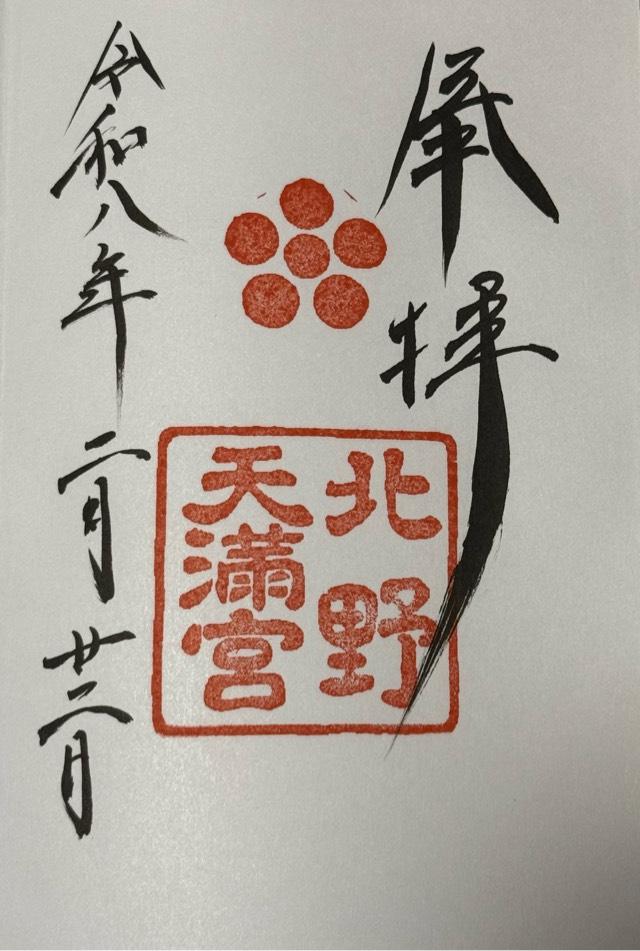 奉拝
北野
天満宮
令和八年二月廿二日